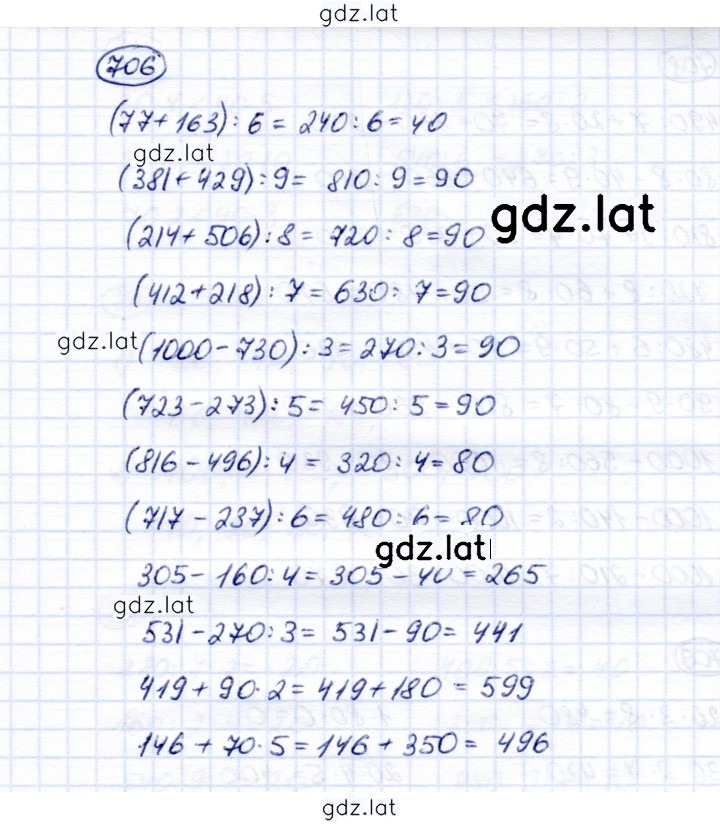 gdz.lat
706
(77+163):6=240:6=40
gdz.lat
(381+429):9= 810:9=90
gdz.lat
(214+506):8=720:8=90
(412+218):7=630:7=90
gdz.lat
(1000-730):3=270:3=90
(723-273):5=450:5=90
(816-496):4=320:4=80
(717-237):6=480:6=80
gdz.lat
305-160:4=305-40=265
gdz.lat
531-270:3=531-90=441
419+90·2=419+180=599
146+70·5=146+350=496
gdz.lat